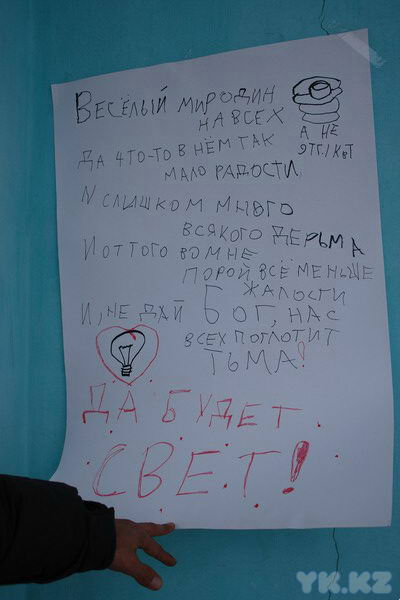 ВЕСЁЛЫЙ МИР ОДИН
НА ВСЕХ
А НЕ
9 ТГ./КВТ
ДА ЧТО-ТО В НЁМ ТАК
МАЛО РАДОСТИ
И СЛИШКОМ МНОГО
ВСЯКОГО ДЕРЬМА
И ОТТОГО ВО МНЕ
ПОРОЙ ВСЁ МЕНЬШЕ
ЖАЛОСТИ
И, НЕ ДАЙ БОГ, НАС
ВСЕХ ПОГЛОТИТ
ТЬМА!
ДА БУДЕТ
СВЕТ!
YK.KZ